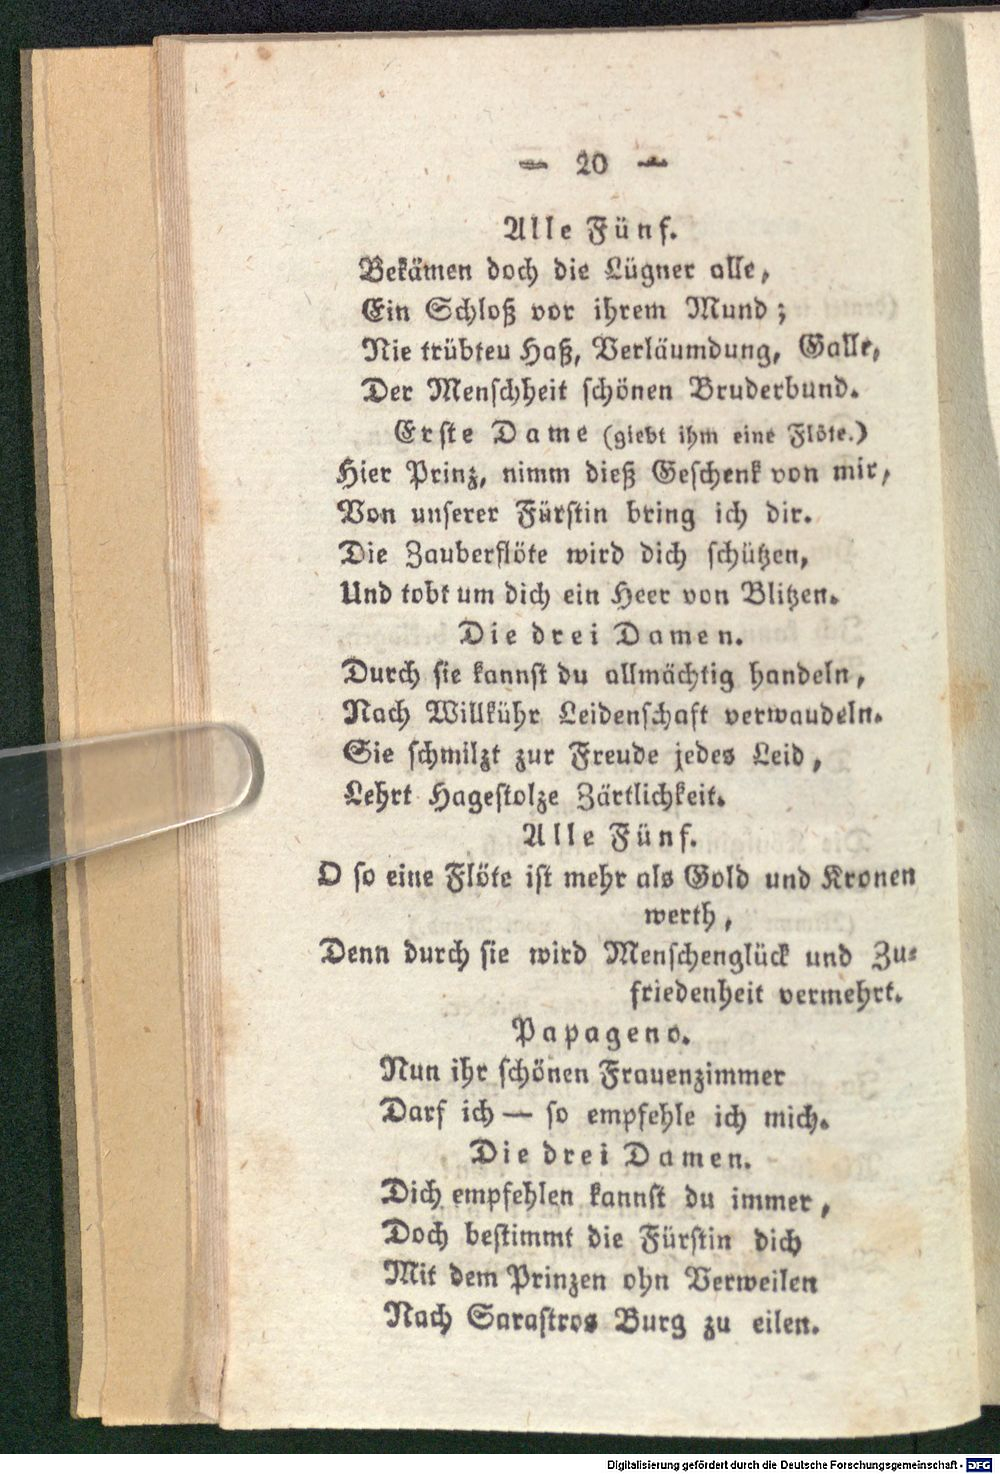 — 20 —
Alle Fünf.
Bekämen doch die Lügner alle,
Ein Schloß vor ihrem Mund;
Nie trübteu Haß, Verläumdung, Galle,
Der Menschheit schönen Bruderbund.
Erste Dame (giebt ihm eine Flöte.)
Hier Prinz, nimm dieß Geschenk von mir,
Von unserer Fürstin bring ich dir.
Die Zauberflöte wird dich schützen,
Und tobt um dich ein Heer von Blitzen.
Die drei Damen.
Durch sie kannst du allmächtig handeln,
Nach Willkühr Leidenschaft verwaudeln.
Sie schmilzt zur Freude jedes Leid,
Lehrt Hagestolze Zärtlichkeit.
Alle Fünf.
O so eine Flöte ist mehr als Gold und Kronen
werth,
Denn durch sie wird Menschenglück und Zu-
friedenheit vermehrt.
Papageno.
Nun ihr schönen Frauenzimmer
Darf ich — so empfehle ich mich.
Die drei Damen.
Dich empfehlen kannst du immer,
Doch bestimmt die Fürstin dich
Mit dem Prinzen ohn Verweilen
Nach Sarastros Burg zu eilen.
Digitalisierung gefördert durch die Deutsche Forschungsgemeinschaft - DFG